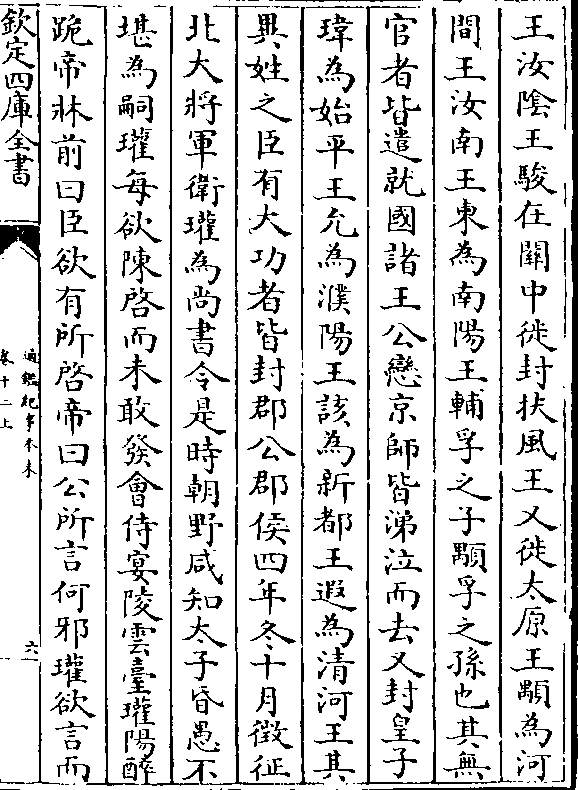 王汝隂王駿在闗中徙封扶風王又徙太原王顒為河
間王汝南王東為南陽王輔孚之子顒孚之孫也其無
官者皆遣就國諸王公戀京師皆涕泣而去又封皇子
瑋為始平王允為濮陽王該為新都王遐為清河王其
異姓之臣有大功者皆封郡公郡侯四年冬十月徴征
北大將軍衛瓘為尚書令是時朝野咸知太子昏愚不
堪為嗣瓘每欲陳啓而未敢發會侍宴陵雲臺瓘陽醉
跪帝牀前曰臣欲有所啓帝曰公所言何邪瓘欲言而
欽定四庫全書
通鑑紀事本末
卷十二上
六